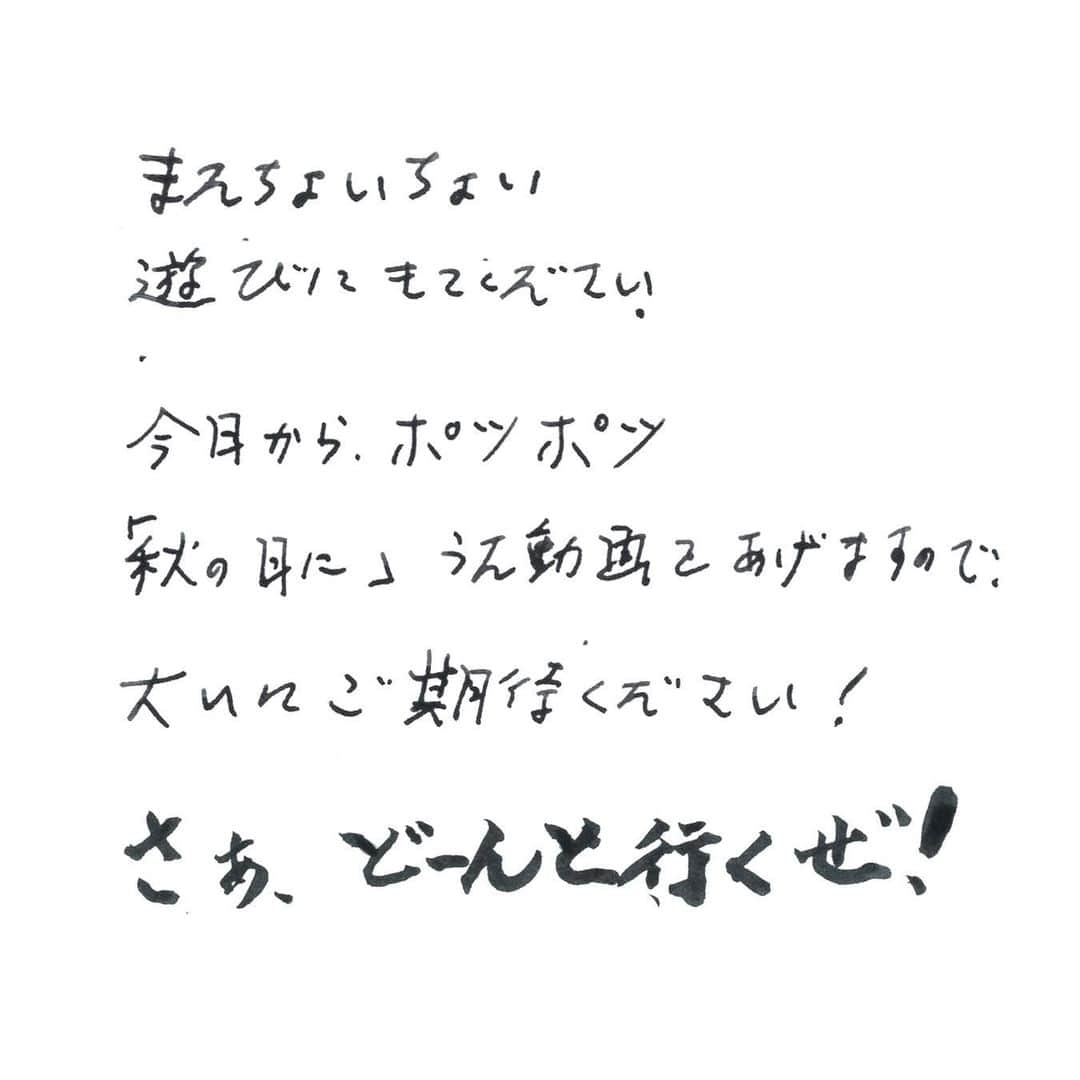 まえちょいちょい
遊びにきてください。
今日から、ポツポツ
「秋の日に」うん動画をあげますので、
大いにご期待ください！
さぁ、どーんと行くぜ！